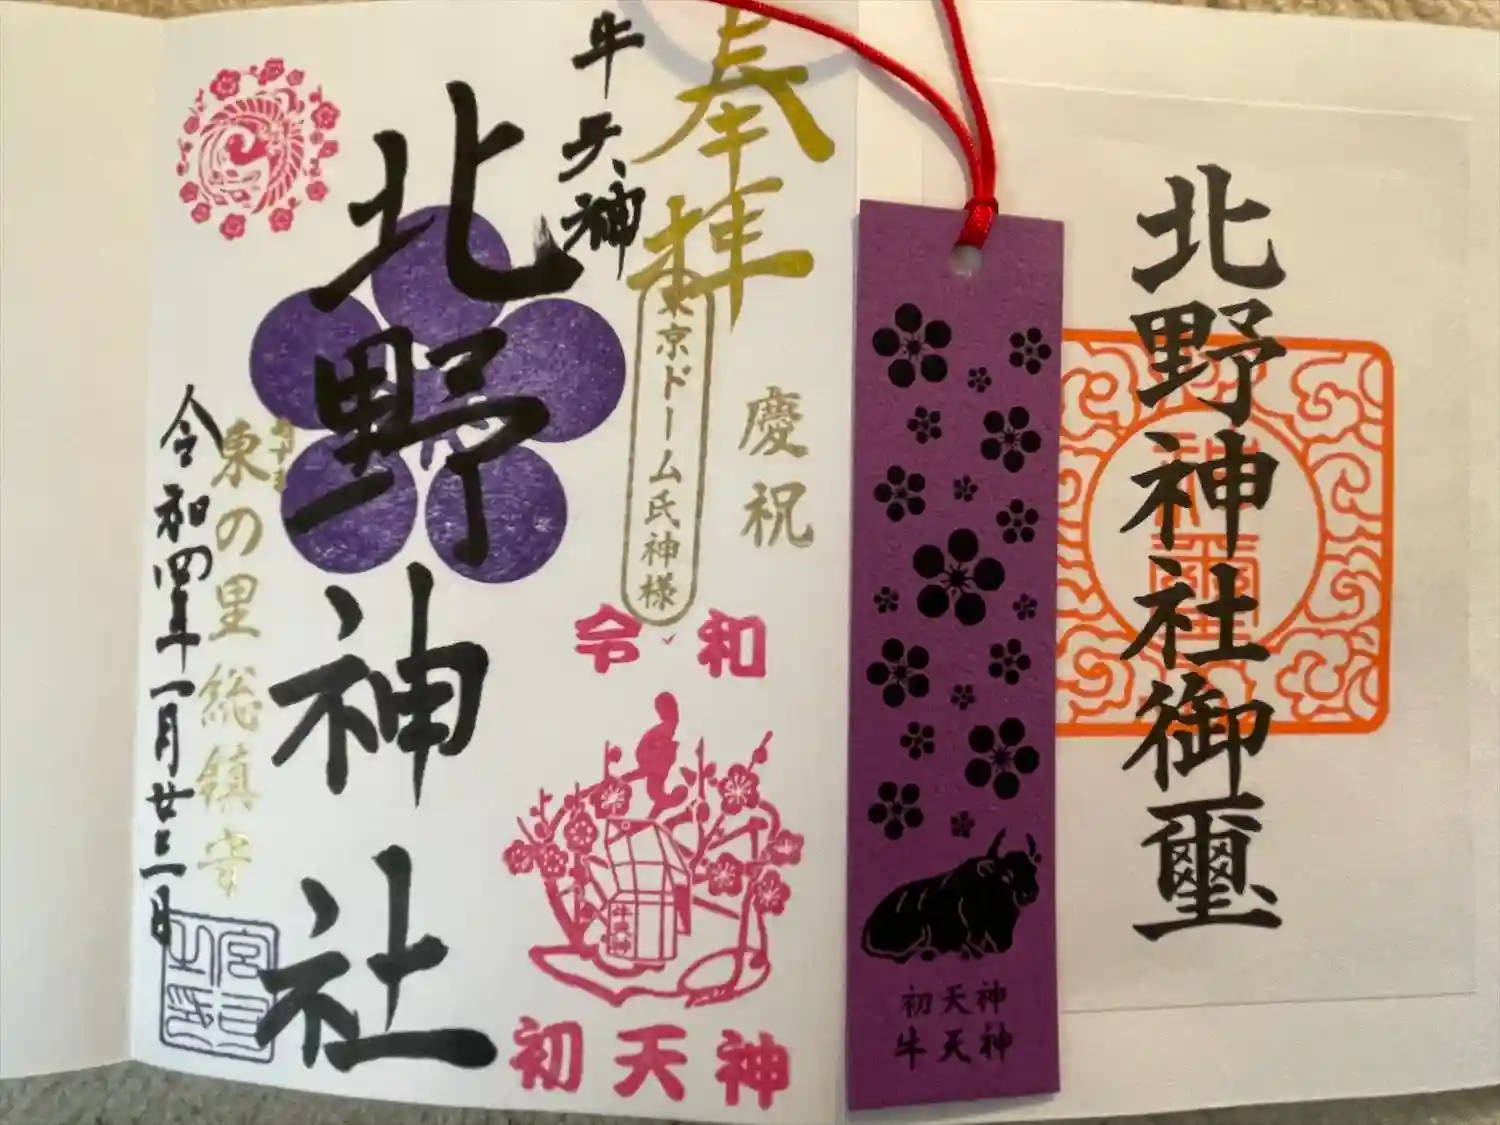 奉拝
慶祝
東京ドーム氏神様
牛天神
北野神社
東の里総鎮守
令和四年一月廿三日
令和
牛天神
初天神
初天神
牛天神
北野神社御璽